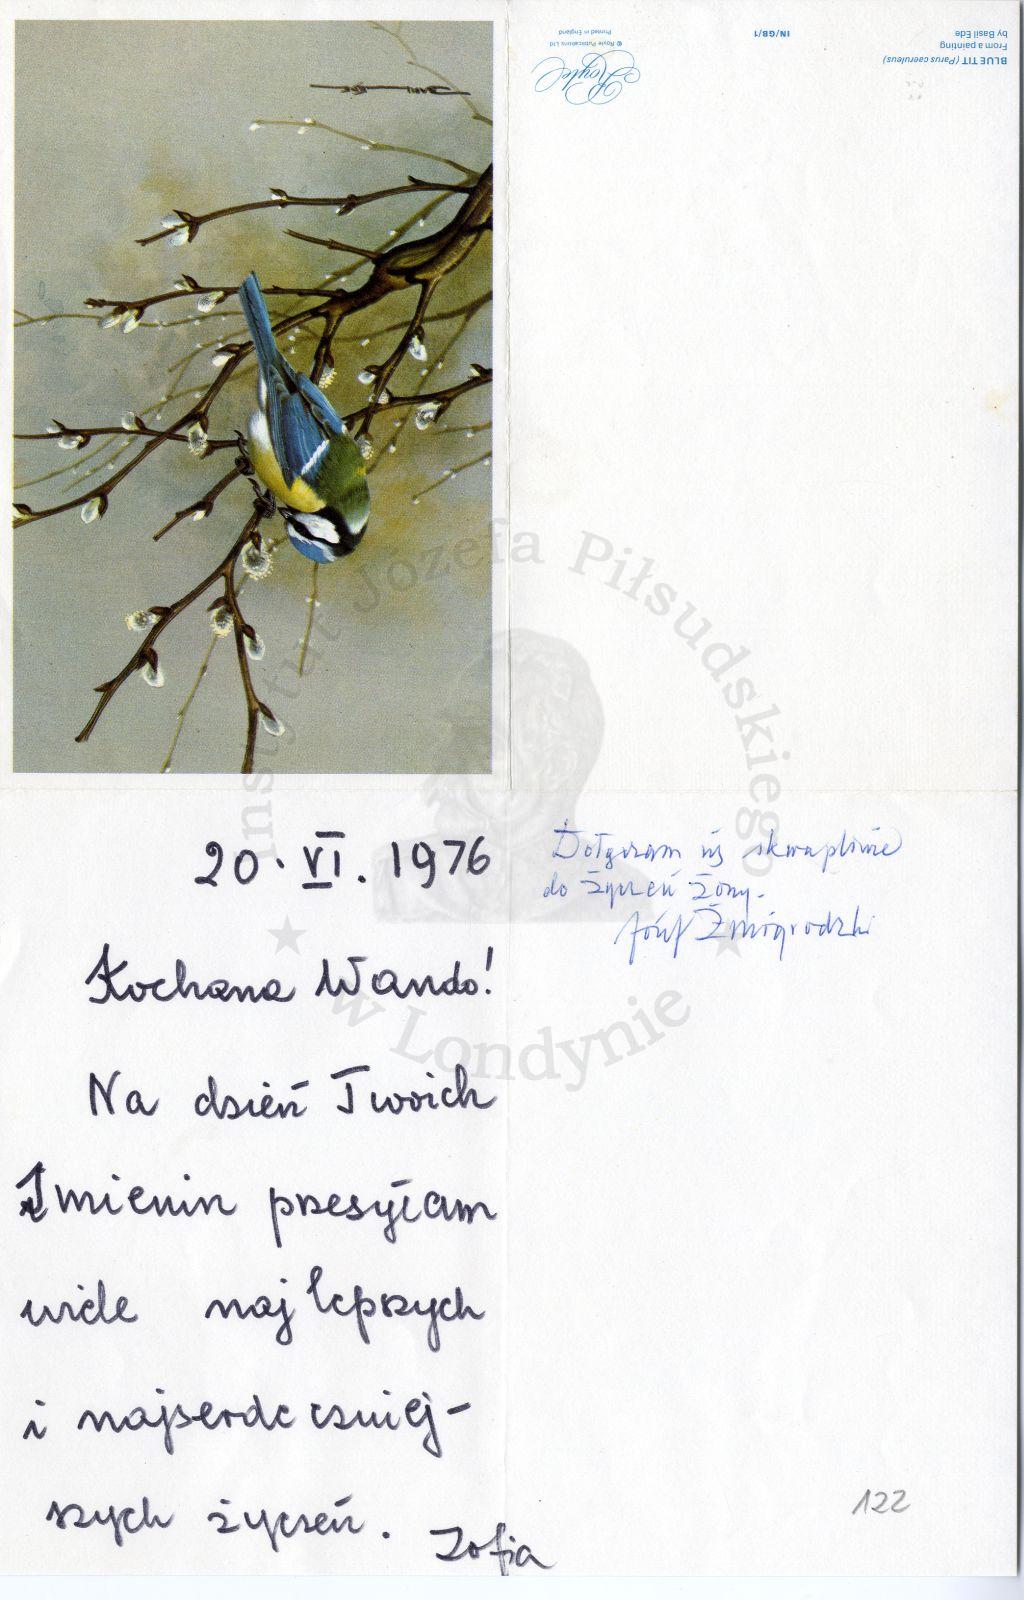 BLUE TIT (Parus caeruleus)
From a painting
by Basil Ede
IN/GB/1
Royle
© Royle Publications Ltd
Printed in England
BASIL EDE
Instytut Józefa Piłsudskiego
w Londynie
20. VI. 1976
Kochana Wando!
Na dzień Twoich
Imienin przesyłam
wiele najlepszych
i najserdeczniej-
szych życzeń.
Zofia
Dołączam się skwapliwie
do życzeń Żony.
Józef Żmigrodzki
122